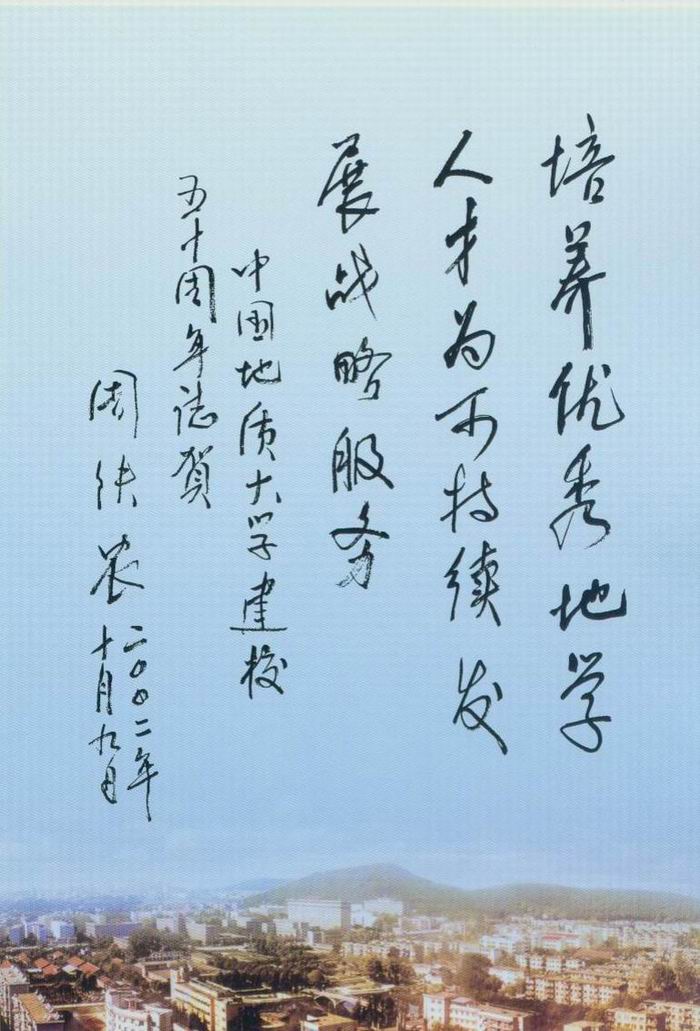 培养优秀地学
人才为可持续发
展战略服务
中国地质大学建校
五十周年誌贺
周铁农
二〇〇二年
十月九日